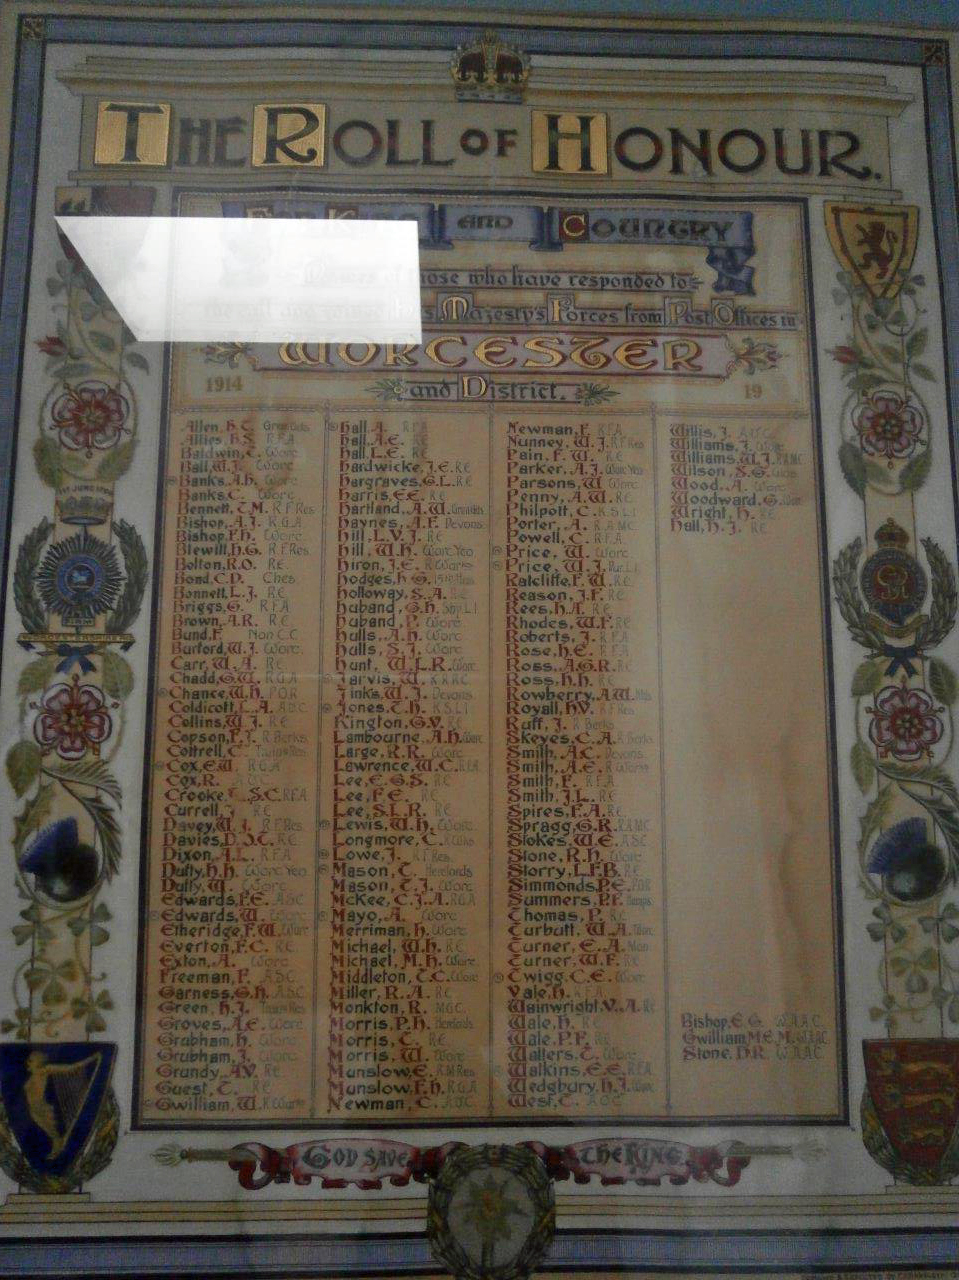 THE ROLL OF HONOUR.
AND COUNTRY
those who have responded to
Majesty's Forces from Post Offices in
WORCESTER
1914 19
and District.
Allen, H.C.
Allies, H.S. R.F.A.
Baldwin, C. Worc
Ball, W.J. Worc
Banks, A.H. Worc
Banks, C. Worc
Bennett, T.M. R.F.Res
Bishop, A.J. R.G.A
Bishop, F.H. Worc
Blewitt, H.G. R.F.Res
Bolton, R.O. R.E.
Bond, C.D. Ches
Bonnell, L.J. R.E.
Briggs, G. R.F.A
Brown, A.R. R.E.
Bund, F. Non C.C
Burford, W.J. Worc
Carr, W.A. R.E.
Chadd, G.W. R.G.A
Chance, W.H. P.O.R
Coldicott, L.A.
Collins, W.J. R.E
Copson, F.J. R.Berks
Cottrell, C.
Cox, E.W. R.E.A
Cox, R.
Crooke, S.C. R.F.A
Currell, J. R.E.
Davey, W.J. R.F.Res
Davies, D.J.C. R.E.
Dixon, A.L. R.F.A
Duffy, H.H. Worc Yeo
Duffy, W. Worc
Edwards, F.E. A.S.C
Edwards, W. Worc
Etheridge, F.W. Worc
Everton, F.C. R.E.
Exton, A. Worc
Freeman, F. A.S.C
Garness, G.H. A.S.C
Green, H.J.
Groves, A.E. Worc
Grubham, H. Worc
Grubham, J. Worc
Grundy, A.V. R.E.
Guest, C. R.E.
Gwilliam, W. R.Warks
Hall, A. R.F.A
Hall, A.E. R.E
Hall, L.E. R.E
Hardwicke, J.E. R.E
Hargraves, G.L. R.E
Harris, E.E. R.E
Hartland, A.W.
Haynes, A.F. Devons
Hill, L.V.J. R.E
Hill, W.H. Worc Yeo
Hiron, J.E. R.Warks
Hodges, H.G.
Holloway, S.A. R.E
Huband, G.H.
Huband, P. Worc
Hulls, A.H. Worc
Hulls, S.J. Worc
Hunt, W.L.R. Worc
Jarvis, W.
Jinks, W.J. Devons
Jones, T.H. K.S.L.I
Kington, G.V. R.E
Lambourne, A.H. Worc
Large, R.R. Worc
Lawrence, W.C. R.F.A
Lee, E.G.S. R.E
Lee, F.E. R.E
Lee, S.L.R. R.E
Lewis, W.H. Worc
Longmore, C.
Lowe, J. R.F.Res
Mason, C. Herefords
Mason, T.J. Worc
McKee, C.J.A. R.G.A
Mayo, A. Worc
Merriman, H. Worc
Michael, W.H. R.E
Michael, M.H. Worc
Middleton, T.C. Worc
Miller, R.A. R.E
Monkton, R. M.G.C
Morris, P.H. Herefords
Morris, C. R.E
Morris, W. Worc
Munslow, E.
Munslow, F.H. R.G.A
Newman, C.
Newman, F. R.F.A
Nunney, W.J. R.F.Res
Pain, F.W. R.E
Parker, A.J. Worc Yeo
Parsons, W. Worc
Penny, A.W. R.E
Philpott, C. K.S.L.I
Porter, A. R.A.M.C
Powell, C. R.F.A
Price, W. Worc
Price, W.J.
Ratcliffe, F.W. R.E
Reason, J.F. R.E
Rees, H.A. R.E
Rhodes, W.F. R.E
Roberts, J. R.F.A
Rose, H.E. R.F.A
Ross, A.G.R. R.E
Ross, H.H. R.E
Rowberry, A.W.
Royall, H.V. R.F.Res
Ruff, J. R Berks
Skeyes, C.A. R Berks
Smith, A.C. Devons
Smith, A.E.
Smith, F. R.F.A
Smith, J.L. R.E
Spires, F.A. R.E
Spragg, G.R. R.A.M.C
Stokes, W.E. A.S.C
Stone, R.H. Worc
Storry, L.F.B. R.E
Simmonds, P.E. P.O.R
Summers, P.F.
Thomas, P. R.E
Turbutt, W.A. Worc
Turner, E.A.
Turner, W.F. R.E
Twigg, C.E. Worc
Vale, H. R.F.A
Wainwright, V.A. R.E
Wale, H. R.E
Wale, P.F. R.E
Walters, T. Worc
Watkins, E.E. R.F.A
Wedgbury, H.J. Worc
West, C.
Willis, J.
Williams, J.
Williams, W.J. R.A.M.C
Wilson, S.G.
Wood, A. Worc
Woodward, G.
Wright, H. R.E
Hall, H.J. R.E
Bishop, E.G. W.A.A.C.
Gwilliam, M.E.M. W.A.A.C
Stone, D.R. W.A.A.C.
GOD SAVE THE KING